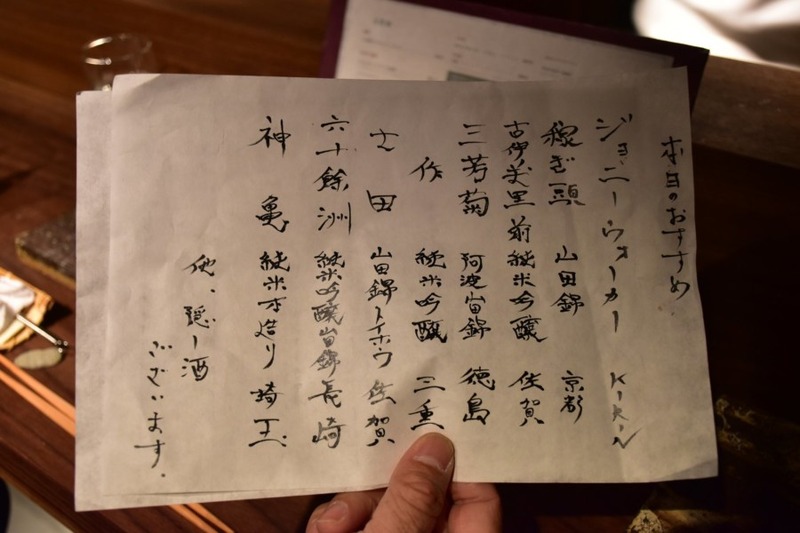 本日のおすすめ
ジョニーウォーカー KIKIN
稼ぎ頭 山田錦 京都
古伊万里 前 純米吟醸 佐賀
三芳菊 阿波山田錦 徳島
作 純米吟醸 三重
七田 山田錦トイホウ 佐賀
六十餘洲 純米吟醸山田錦 長崎
神亀 純米手造り 埼玉
他、隠し酒
ございます.